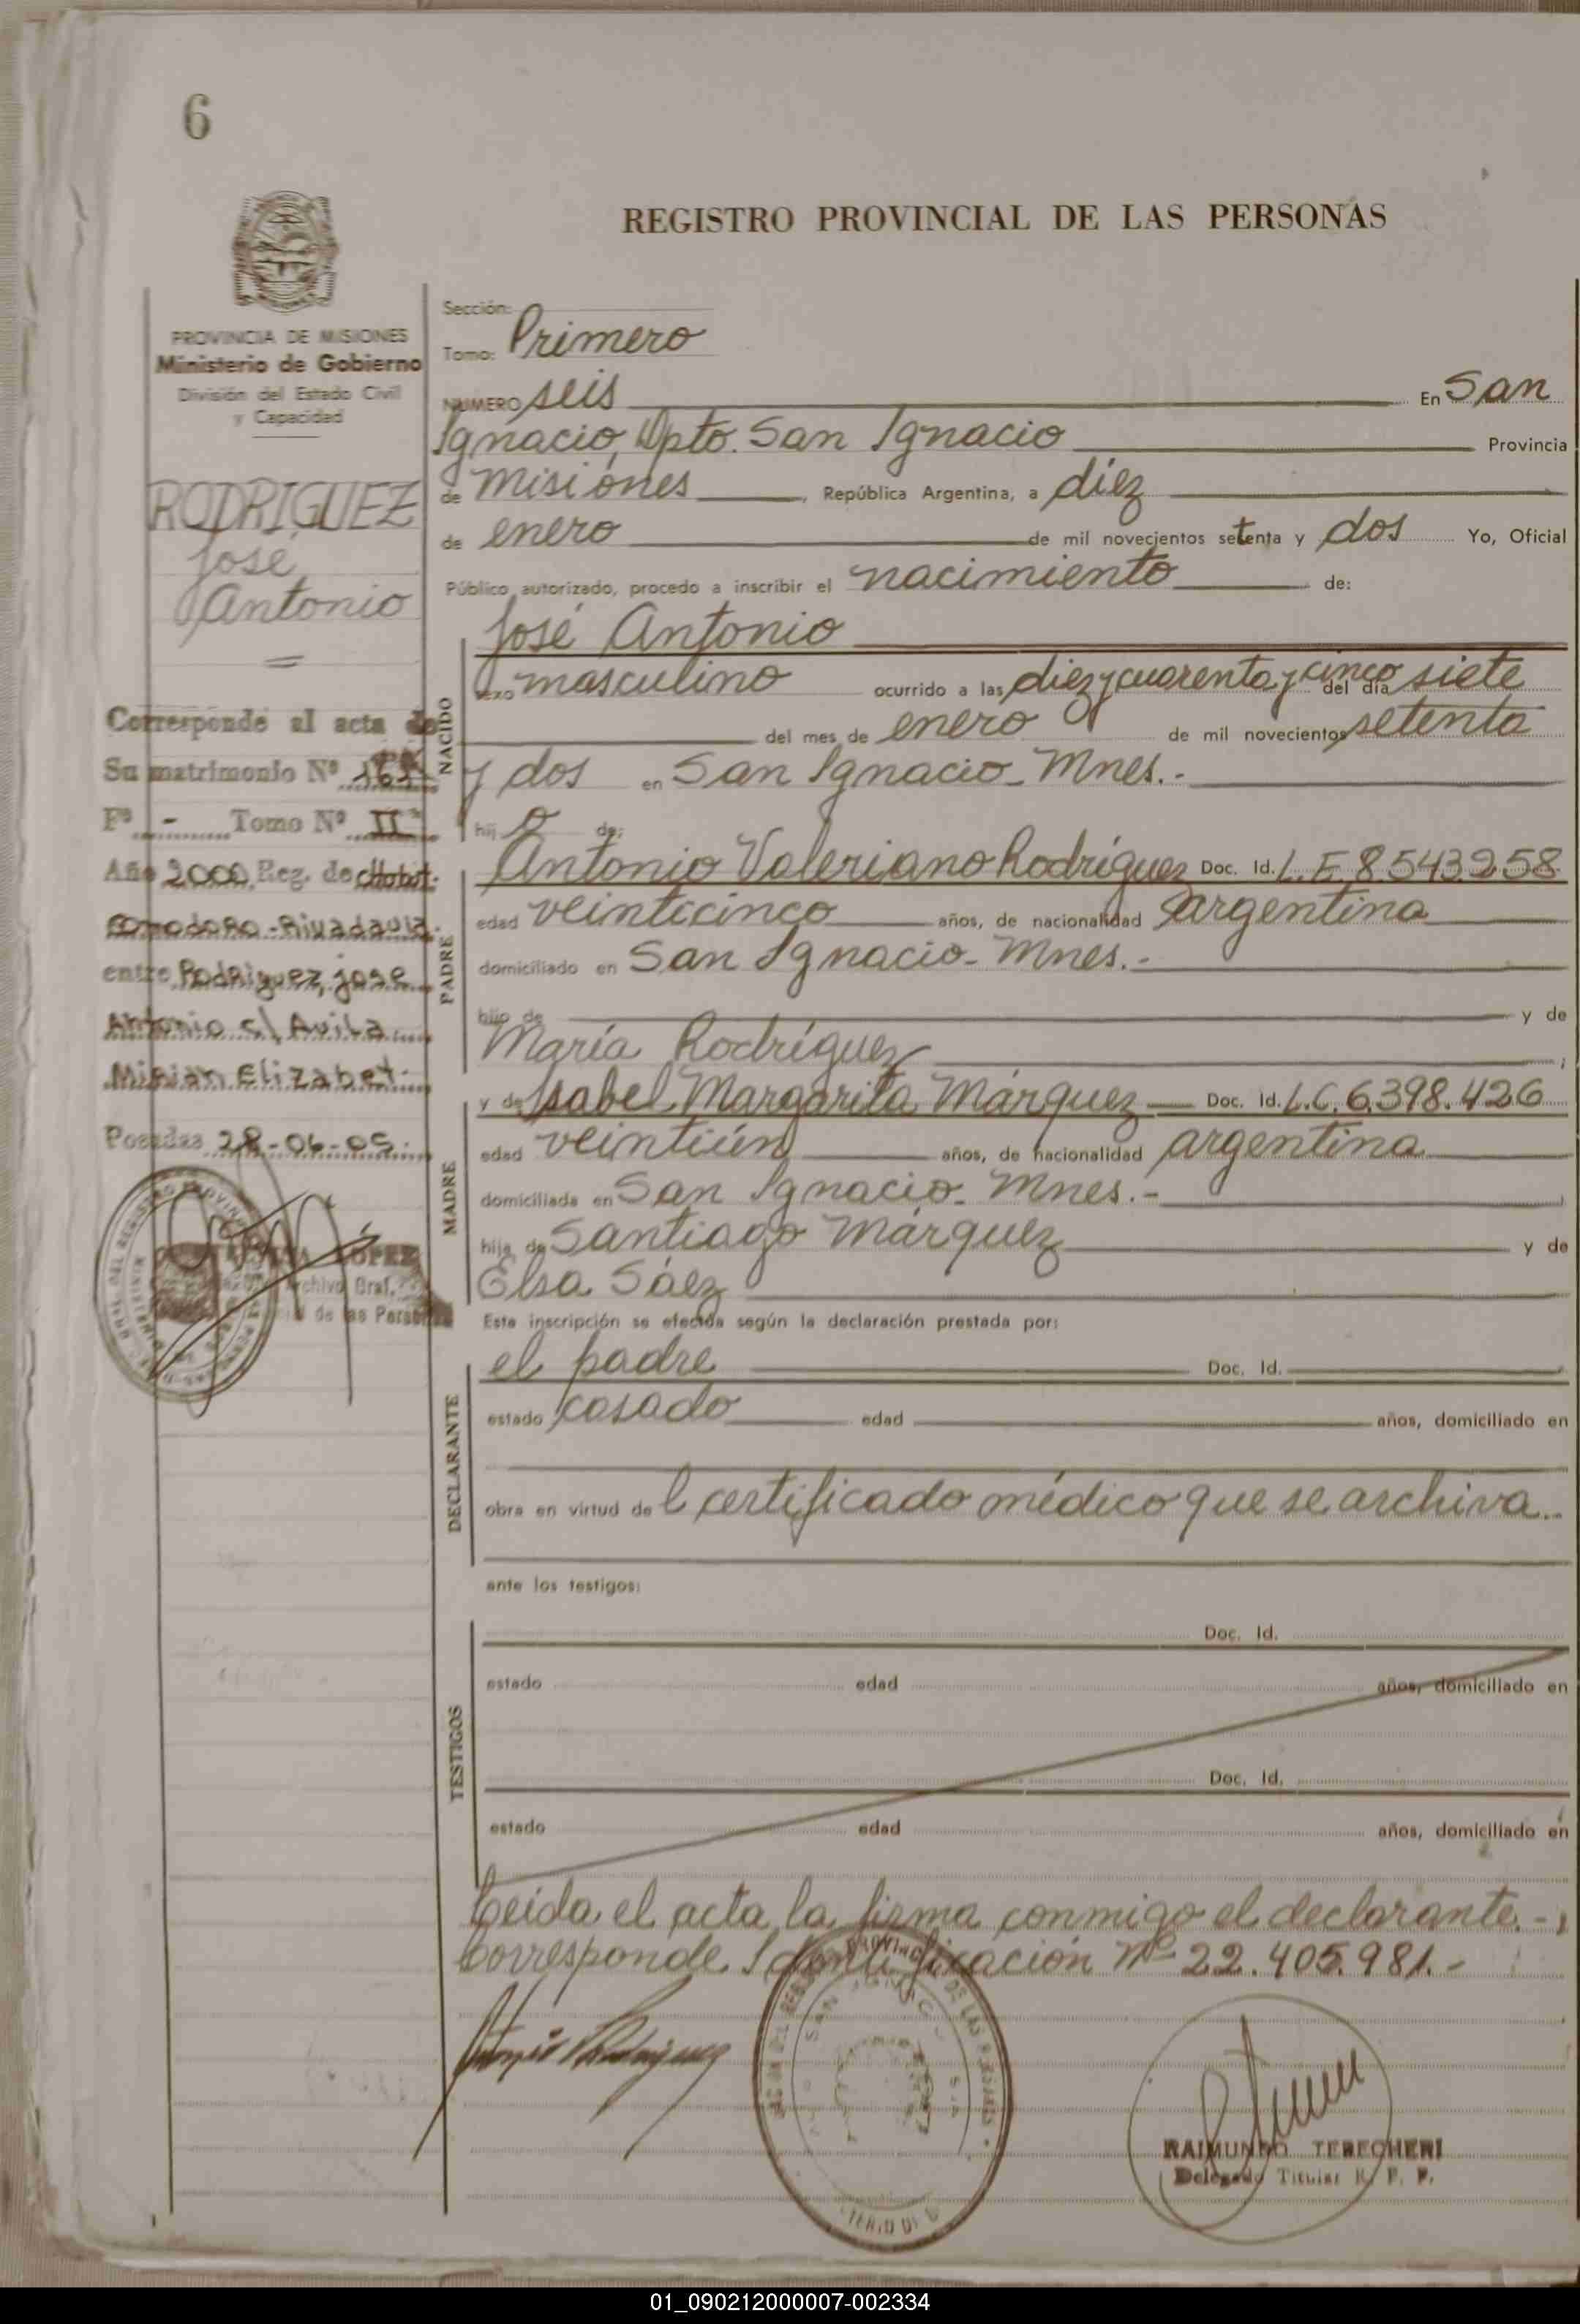 6
REGISTRO PROVINCIAL DE LAS PERSONAS
PROVINCIA DE MISIONES
Ministerio de Gobierno
División del Estado Civil
y Capacidad
RODRIGUEZ
José
Antonio
Corresponde al acta de
Su matrimonio Nº
Fº - Tomo Nº II
Año 2000 Reg. de Chubut.
Comodoro-Rivadavia.
entre Rodriguez, jose
Antonio c/ Avila
Mirian Elizabet.
Posadas 28-06-05.
LOPEZ
Archivo Gral.
de las Personas
Sección:
Tomo: Primero
NUMERO seis En San
Ignacio, Dpto. San Ignacio Provincia
de Misiones, República Argentina, a diez
de enero de mil novecientos setenta y dos Yo, Oficial
Público autorizado, procedo a inscribir el nacimiento de:
NACIDO
José Antonio
sexo masculino ocurrido a las diez y cuarenta y cinco del día siete
del mes de enero de mil novecientos setenta
y dos en San Ignacio - Mnes.-
hij o de:
PADRE
Antonio Valeriano Rodríguez Doc. Id. L.E. 8.543.258
edad veinticinco años, de nacionalidad argentina
domiciliado en San Ignacio - Mnes.-
hijo de y de
María Rodríguez ;
MADRE
y de Isabel Margarita Márquez Doc. Id. L.C. 6.398.426
edad veintiún años, de nacionalidad argentina
domiciliada en San Ignacio - Mnes.-
hija de Santiago Márquez y de
Elsa Sáez
Esta inscripción se efectúa según la declaración prestada por:
DECLARANTE
el padre Doc. Id.
estado casado edad años, domiciliado en
obra en virtud de l certificado médico que se archiva.-
ante los testigos:
TESTIGOS
Doc. Id.
estado edad años, domiciliado en
Doc. Id.
estado edad años, domiciliado en
Leída el acta, la firma conmigo el declarante.-
Corresponde Identificación Nº 22.405.981.-
Antonio Rodriguez
RAIMUNDO TERECHERI
Delegado Titular R. P. P.
01_090212000007-002334